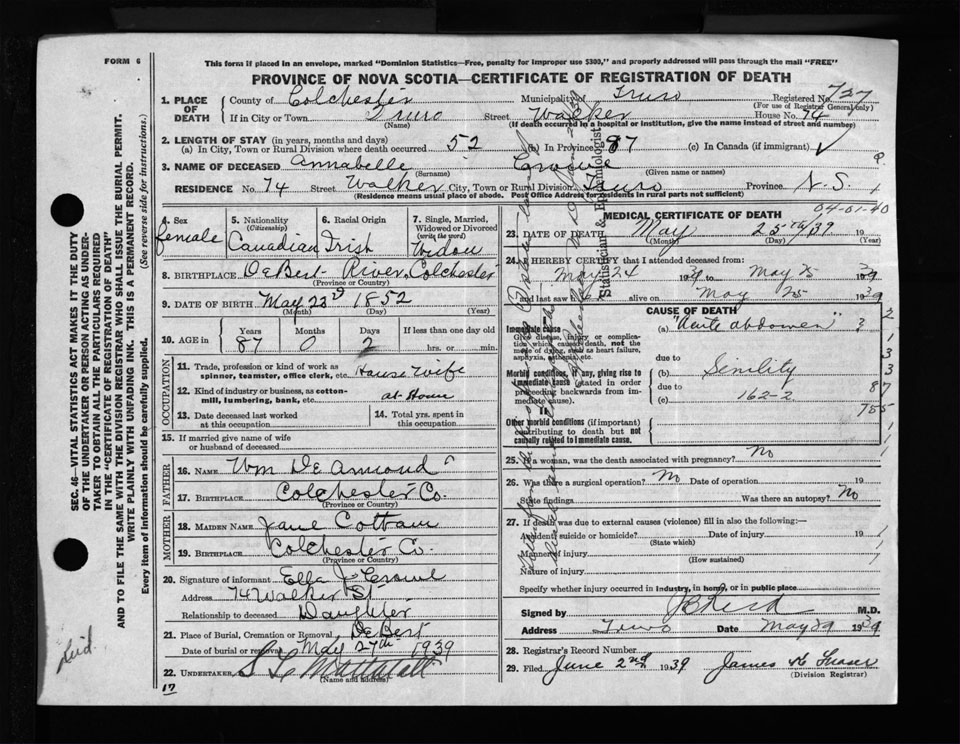 FORM 6
This form if placed in an envelope, marked "Dominion Statistics—Free, penalty for improper use $300," and properly addressed will pass through the mail "FREE"
PROVINCE OF NOVA SCOTIA—CERTIFICATE OF REGISTRATION OF DEATH
Registered No. 727
(For use of Registrar General only)
1. PLACE OF DEATH
County of Colchester Municipality of Truro
If in City or Town Truro Street Walker House No. 74
(Name) (If death occurred in a hospital or institution, give the name instead of street and number)
2. LENGTH OF STAY (in years, months and days)
(a) In City, Town or Rural Division where death occurred 52 (b) In Province 87 (c) In Canada (if immigrant)
3. NAME OF DECEASED Annabelle Crowe
(Surname) (Given name or names)
RESIDENCE No. 74 Street Walker City, Town or Rural Division Truro Province N.S.
(Residence means usual place of abode. Post Office Address for residents in rural parts not sufficient)
4. Sex female
5. Nationality (Citizenship) Canadian
6. Racial Origin Irish
7. Single, Married, Widowed or Divorced (write the word) Widow
8. BIRTHPLACE DeBert River, Colchester
(Province or Country)
9. DATE OF BIRTH May 23rd 1852
(Month) (Day) (Year)
10. AGE in
Years Months Days If less than one day old
87 0 2 hrs. or min.
OCCUPATION
11. Trade, profession or kind of work as spinner, teamster, office clerk, etc. House wife
12. Kind of industry or business, as cotton-mill, lumbering, bank, etc. at Home
13. Date deceased last worked at this occupation
14. Total yrs. spent in this occupation
15. If married give name of wife or husband of deceased
FATHER
16. NAME Wm DeArmond
17. BIRTHPLACE Colchester Co.
(Province or Country)
MOTHER
18. MAIDEN NAME Jane Cottam
19. BIRTHPLACE Colchester Co.
(Province or Country)
20. Signature of informant Ella J Crowe
Address 74 Walker St
Relationship to deceased Daughter
21. Place of Burial, Cremation or Removal DeBert
Date of burial or removal May 27th 1939
22. UNDERTAKER
(Name and address)
17
MEDICAL CERTIFICATE OF DEATH
04-01-40
23. DATE OF DEATH May 25th/39 19
(Month) (Day) (Year)
24. I HEREBY CERTIFY that I attended deceased from:
May 24 1939 to May 25 1939
and last saw h alive on May 25 1939
CAUSE OF DEATH
Immediate cause
Give disease, injury or complication which caused death, not the mode of dying, such as heart failure, asphyxia, asthenia, etc.
(a) "Acute abdomen" 3
due to
Morbid conditions, if any, giving rise to immediate cause (stated in order proceeding backwards from immediate cause).
(b) Senility
due to
(c) 162-2
II.
Other morbid conditions (if important) contributing to death but not causally related to immediate cause.
2
1
3
3
87
755
1
1
25. If a woman, was the death associated with pregnancy? No
26. Was there a surgical operation? No Date of operation 19
State findings Was there an autopsy? No
27. If death was due to external causes (violence) fill in also the following:—
Accident, suicide or homicide? Date of injury 19
(State which)
Manner of injury
(How sustained)
Nature of injury
Specify whether injury occurred in industry, in home, or in public place
Signed by M.D.
Address Truro Date May 29 1939
28. Registrar's Record Number
29. Filed June 2nd 1939 James Fraser
(Division Registrar)
Statistician & Epidemiologist
SEC. 46—VITAL STATISTICS ACT MAKES IT THE DUTY
OF THE UNDERTAKER OR PERSON ACTING AS UNDER-
TAKER TO OBTAIN ALL THE PARTICULARS REQUIRED
IN THE "CERTIFICATE OF REGISTRATION OF DEATH"
AND TO FILE THE SAME WITH THE DIVISION REGISTRAR WHO SHALL ISSUE THE BURIAL PERMIT.
WRITE PLAINLY WITH UNFADING INK. THIS IS A PERMANENT RECORD.
Every item of information should be carefully supplied. (See reverse side for instructions.)